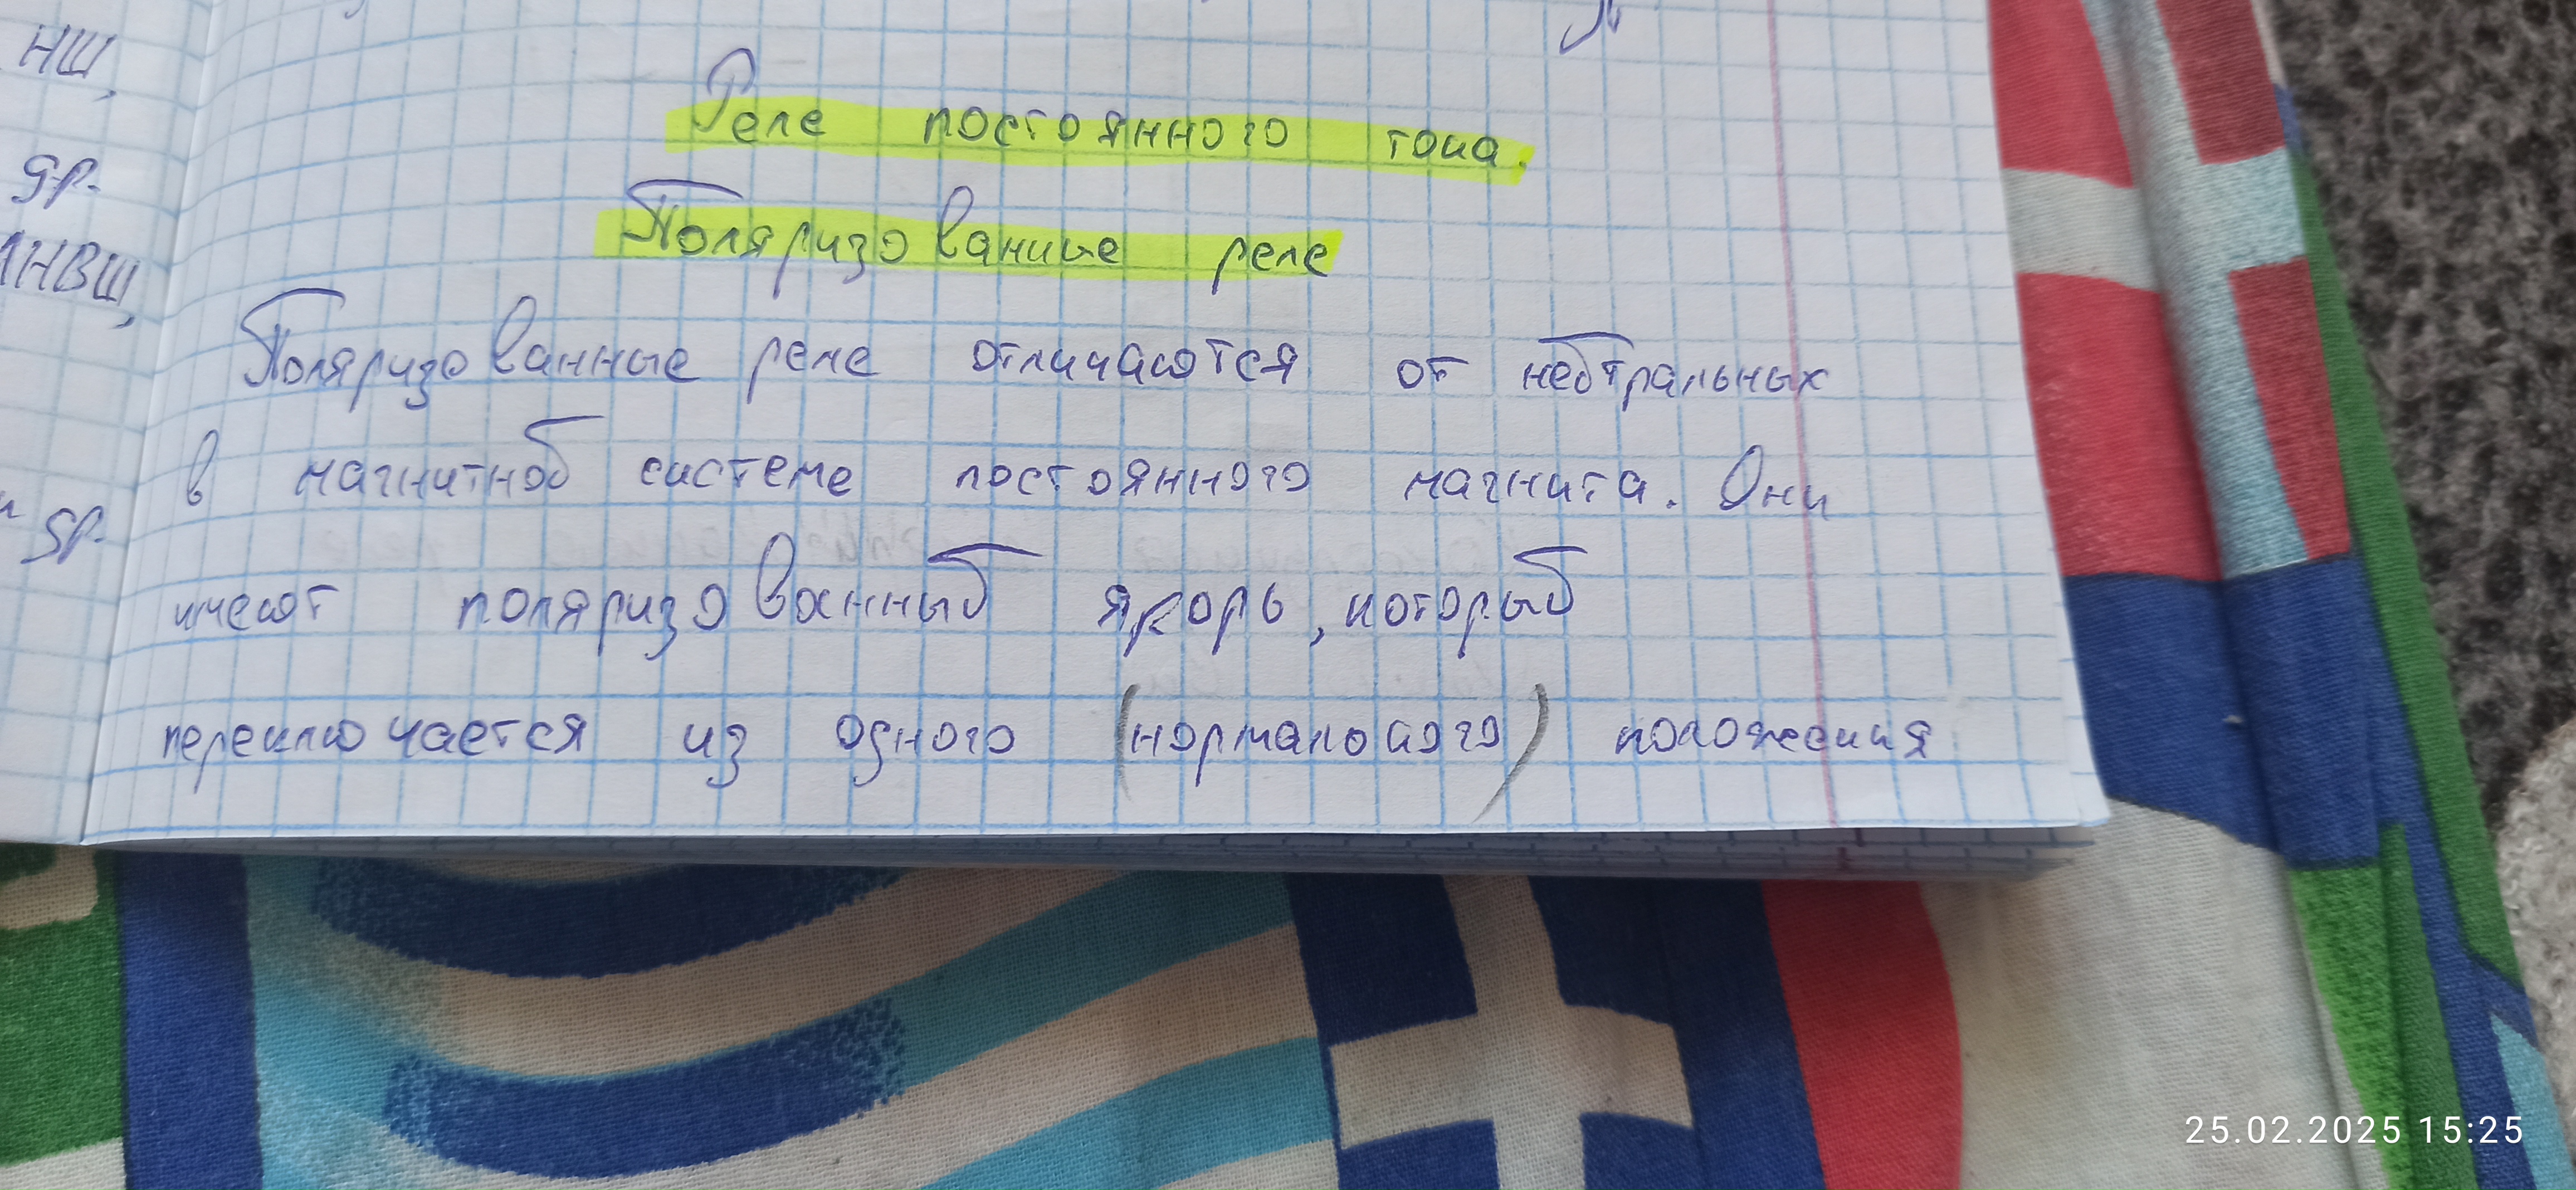 НШ,
Реле постоянного тока.
ЯР.
Поляризование реле
НВШ,
Поляризованные реле отличаются от нейтральных
в магнитной системе постоянного магнита. Они
имеют поляризованный якорь, который
переключается из одного (нормального) положения
25.02.2025 15:25